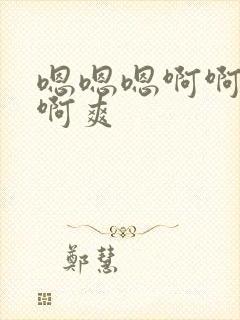 嗯嗯嗯啊啊
啊爽
鄭慧